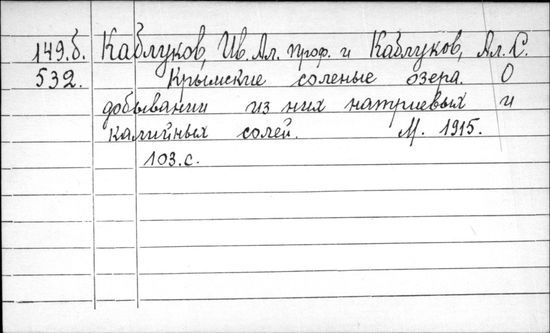 149.б. Каблуков, Ив. Ал. проф. и Каблуков, Ал. С.
532. Крымские соленые озера. О
добывании из них натриевых и
калийных солей. М. 1915.
103.с.